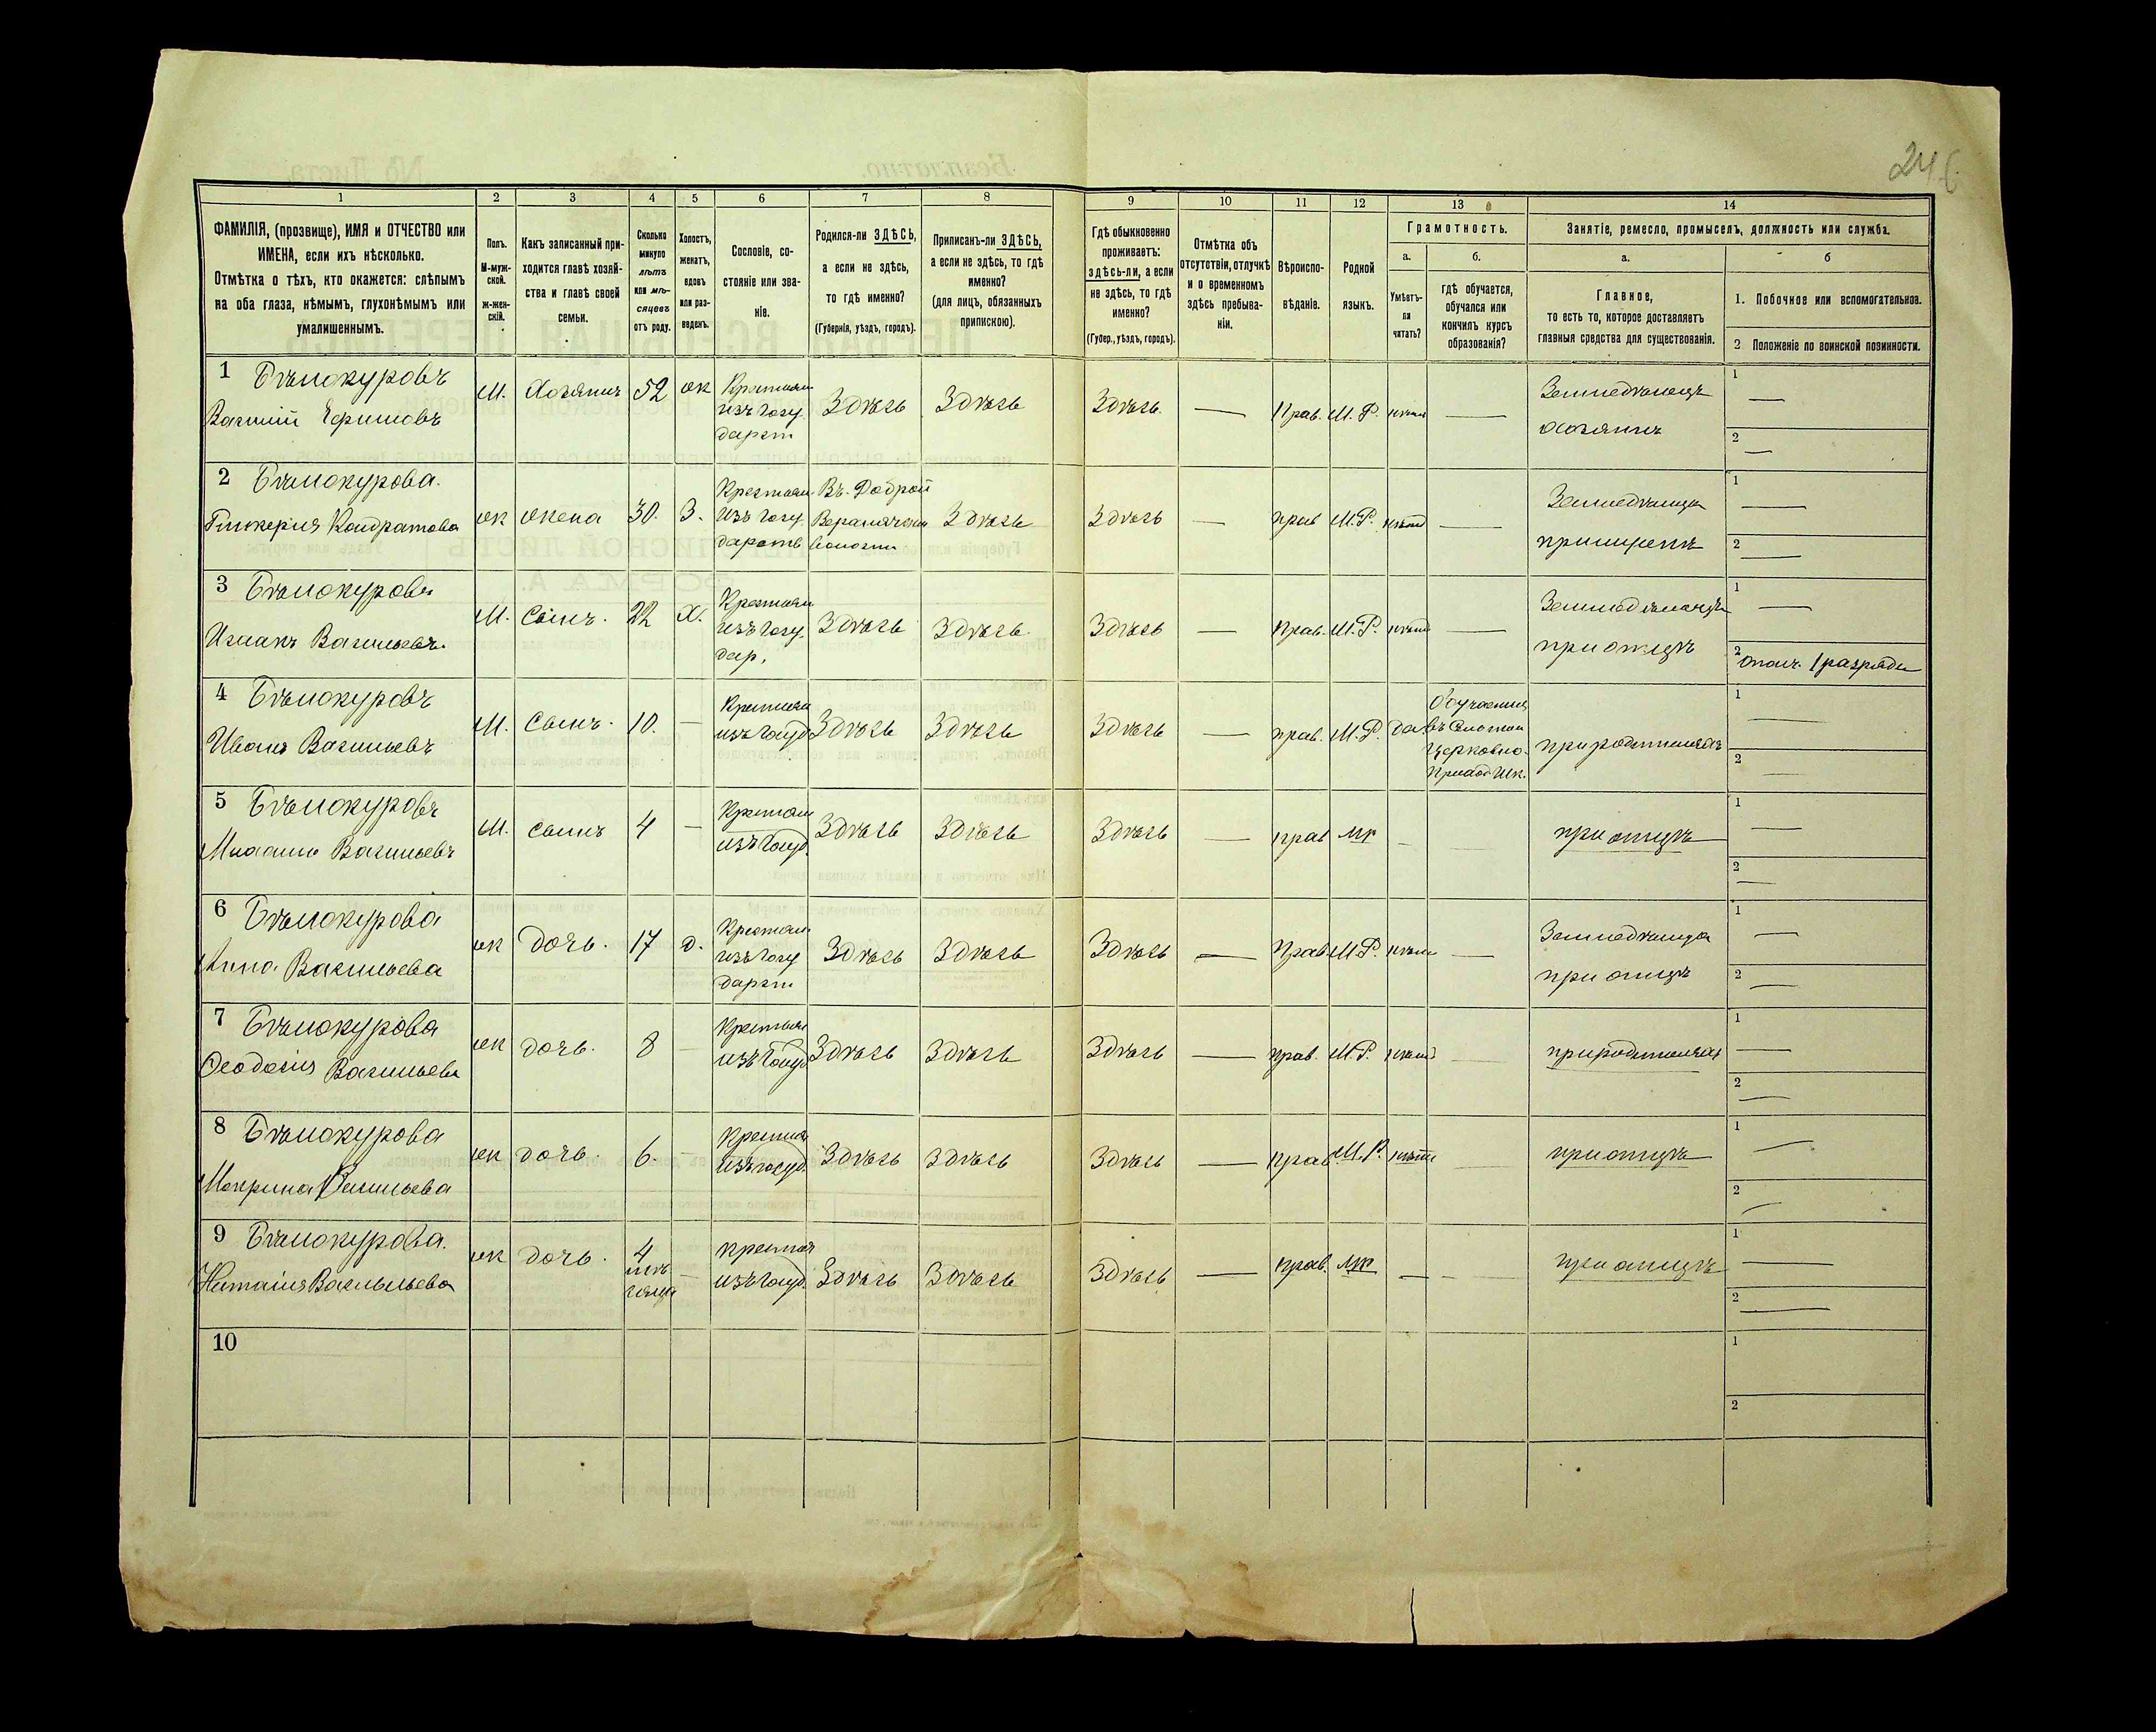 24 б
1 2 3 4 5 6 7 8 9 10 11 12 13 14
ФАМИЛІЯ, (прозвище), ИМЯ и ОТЧЕСТВО или
ИМЕНА, если ихъ нѣсколько.
Отмѣтка о тѣхъ, кто окажется: слѣпымъ
на оба глаза, нѣмымъ, глухонѣмымъ или
умалишеннымъ.
Полъ.
М-муж-
ской.
ж-жен-
скій.
Какъ записанный при-
ходится главѣ хозяй-
ства и главѣ своей
семьи.
Сколько
минуло
лѣтъ
или мѣ-
сяцевъ
отъ роду.
Холостъ,
женатъ,
вдовъ
или раз-
веденъ.
Сословіе, со-
стояніе или зва-
ніе.
Родился-ли ЗДѢСЬ,
а если не здѣсь,
то гдѣ именно?
(Губернія, уѣздъ, городъ).
Приписанъ-ли ЗДѢСЬ,
а если не здѣсь, то гдѣ
именно?
(для лицъ, обязанныхъ
припискою).
Гдѣ обыкновенно
проживаетъ:
здѣсь-ли, а если
не здѣсь, то гдѣ
именно?
(Губер., уѣздъ, городъ).
Отмѣтка объ
отсутствіи, отлучкѣ
и о временномъ
здѣсь пребыва-
ніи.
Вѣроиспо-
вѣданіе.
Родной
языкъ.
Грамотность.
а.
Умѣетъ-
ли
читать?
б.
гдѣ обучается,
обучался или
кончилъ курсъ
образованія?
Занятіе, ремесло, промыселъ, должность или служба.
а.
Главное,
то есть то, которое доставляетъ
главныя средства для существованія.
б
1. Побочное или вспомогательное.
2 Положеніе по воинской повинности.
1 Бѣлокуровъ
Василій
М. Хозяинъ 52 ж
Крестьян
изъ Госу
дарст
Здѣсь Здѣсь Здѣсь — Прав. М.Р. нѣтъ —
Земледѣлецъ
хозяинъ
1 —
2 —
2 Бѣлокурова.
Гликерия Кондратова
ж жена 30. З.
Крестьян
изъ Госу
дарств
Въ. Доброй
волости
Здѣсь Здѣсь — прав М.Р. нѣтъ —
Земледѣлица
1 —
2 —
3 Бѣлокуровъ
Исаакъ Васильевъ
М. Сынъ. 22 Х.
Крестьян
изъ Госу.
дар.
Здѣсь Здѣсь Здѣсь — Прав. М.Р. нѣтъ —
Земледѣлецъ
при отцѣ
1 —
2 ополч. 1 разряда
4 Бѣлокуровъ
Иванъ Васильевъ
М. Сынъ. 10. —
Крестьян
изъ Госуд
Здѣсь Здѣсь Здѣсь — прав. М.Р. да
Обучается
въ
Церковно-
Приход Шк.
при родителяхъ
1 —
2 —
5 Бѣлокуровъ
Михаилъ Васильевъ
М. сынъ 4 —
Крестьян
изъ Госуд.
Здѣсь Здѣсь Здѣсь — прав мр — —
при отцѣ
1 —
2 —
6 Бѣлокурова
Анна Васильева
ж дочь. 17 д.
Крестьян
изъ Госу
дарст
Здѣсь Здѣсь Здѣсь — Прав М.Р. нѣтъ —
Земледѣлица
при отцѣ
1 —
2 —
7 Бѣлокурова
Ѳеодосія Васильева
ж дочь. 8 —
Крестьян
изъ Госуд
Здѣсь Здѣсь Здѣсь — прав. М.Р. нѣтъ —
при родителяхъ
1 —
2 —
8 Бѣлокурова
Мокрина Васильева
ж дочь. 6. —
Крестьян
изъ госуд
Здѣсь Здѣсь Здѣсь — прав М.Р. нѣтъ —
при отцѣ
1 —
2 —
9 Бѣлокурова.
Наталія Васильева
ж дочь. 4
—
крестьян
изъ Госуд.
Здѣсь Здѣсь Здѣсь — прав. мр — —
при отцѣ
1 —
2 —
10
1
2